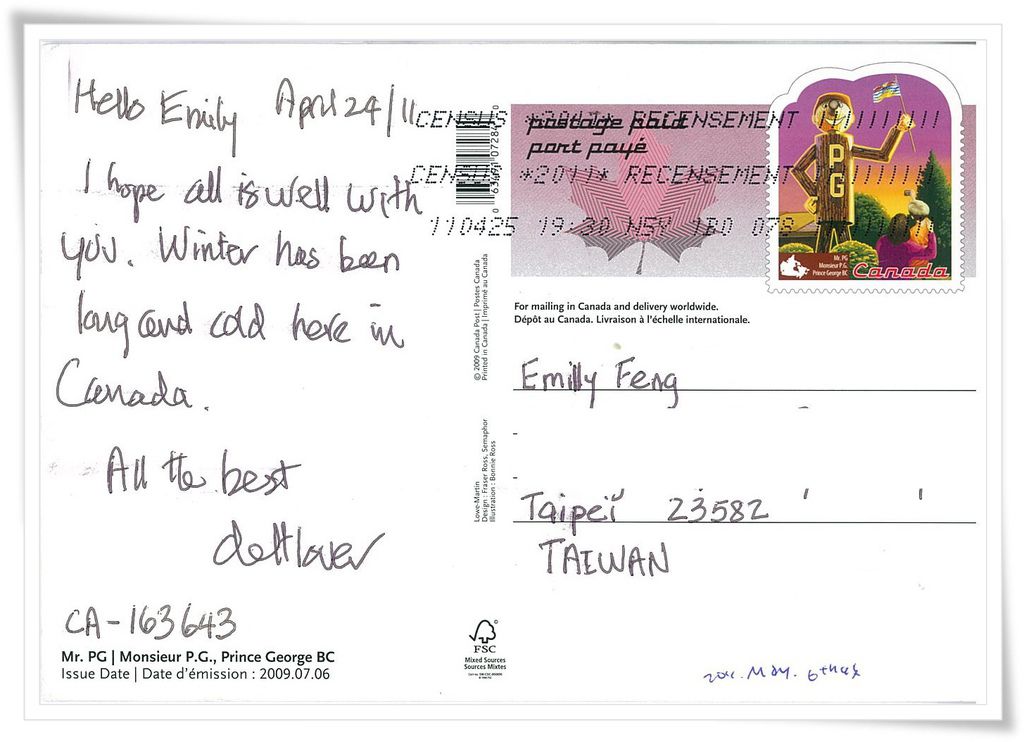 Hello Emily April 24/11
I hope all is well with
you. Winter has been
long and cold here in
Canada.
All the best
CA-163643
Mr. PG | Monsieur P.G., Prince George BC
Issue Date | Date d'émission : 2009.07.06
© 2009 Canada Post | Postes Canada
Printed in Canada | Imprimé au Canada
Lowe-Martin
Design : Fraser Ross, Semaphor
Illustration : Bonnie Ross
FSC
Mixed Sources
Sources Mixtes
postage paid
port payé
CENSUS *2011* RECENSEMENT
CENSUS *2011* RECENSEMENT
110425 19:30 NSY 1B0 078
PG
Mr. PG
Monsieur P.G.
Prince George BC
Canada
For mailing in Canada and delivery worldwide.
Dépôt au Canada. Livraison à l'échelle internationale.
Emilly Feng
Taipei 23582
TAIWAN
2011. May. 6th